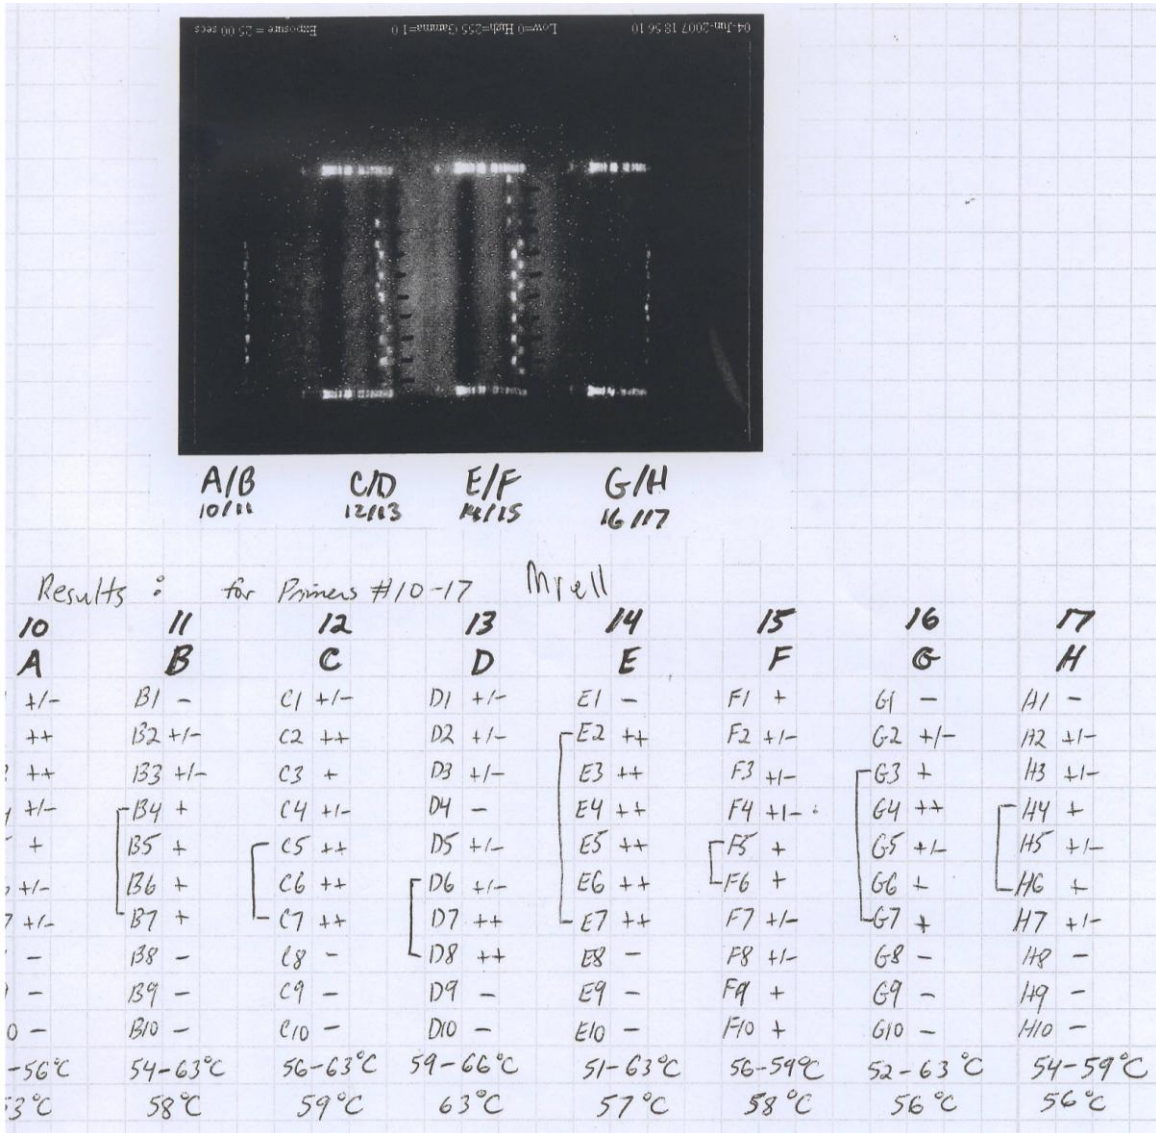 Exposure = 25.00 secs Low=0 High=255 Gamma=1.0 04-Jun-2007 18:56:10
A/B C/D E/F G/H
10/11 12/13 14/15 16/17
Results : for Primers #10-17
10 11 12 13 14 15 16 17
A B C D E F G H
+/- B1 - C1 +/- D1 +/- E1 - F1 + G1 - H1 -
++ B2 +/- C2 ++ D2 +/- E2 ++ F2 +/- G2 +/- H2 +/-
++ B3 +/- C3 + D3 +/- E3 ++ F3 +/- G3 + H3 +/-
+/- B4 + C4 +/- D4 - E4 ++ F4 +/- G4 ++ H4 +
+ B5 + C5 ++ D5 +/- E5 ++ F5 + G5 +/- H5 +/-
+/- B6 + C6 ++ D6 +/- E6 ++ F6 + G6 + H6 +
+/- B7 + C7 ++ D7 ++ E7 ++ F7 +/- G7 + H7 +/-
- B8 - C8 - D8 ++ E8 - F8 +/- G8 - H8 -
- B9 - C9 - D9 - E9 - F9 + G9 - H9 -
0 - B10 - C10 - D10 - E10 - F10 + G10 - H10 -
-56°C 54-63°C 56-63°C 59-66°C 51-63°C 56-59°C 52-63°C 54-59°C
3°C 58°C 59°C 63°C 57°C 58°C 56°C 56°C